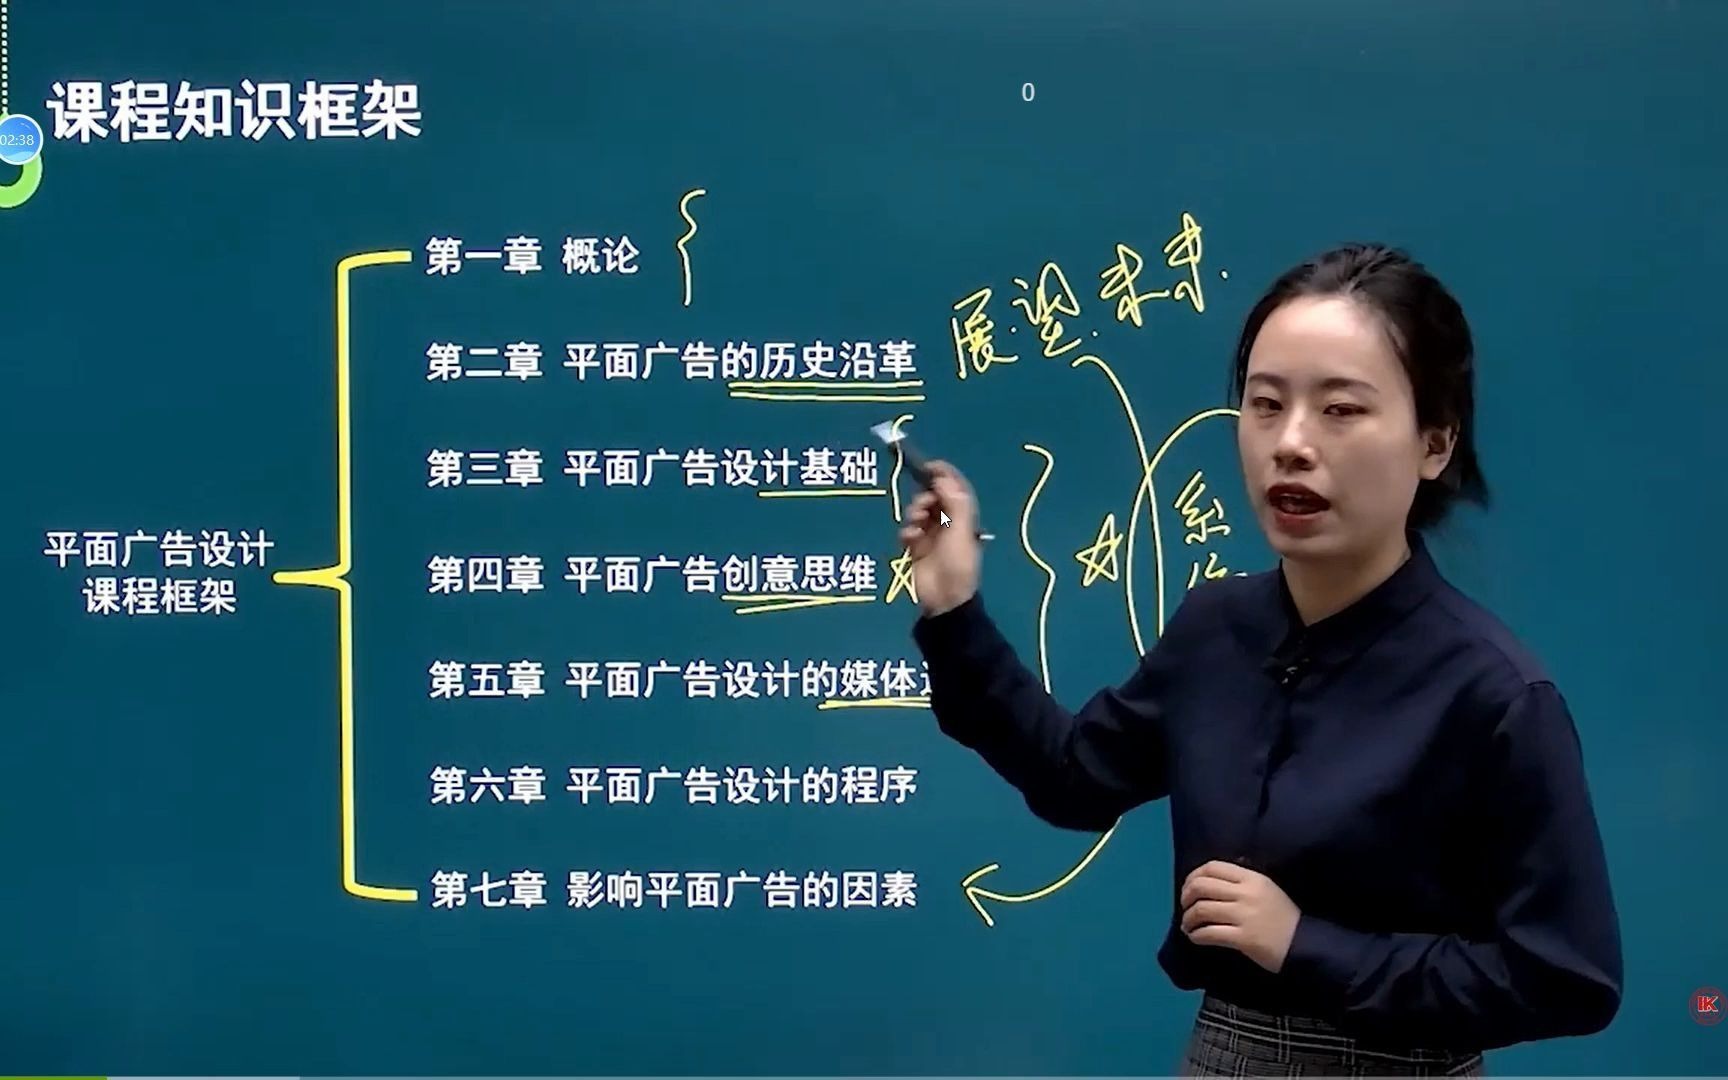 课程知识框架
0
02:38
第一章 概论
展望未来
第二章 平面广告的历史沿革
第三章 平面广告设计基础
系
平面广告设计
课程框架
第四章 平面广告创意思维
第五章 平面广告设计的媒体
第六章 平面广告设计的程序
第七章 影响平面广告的因素